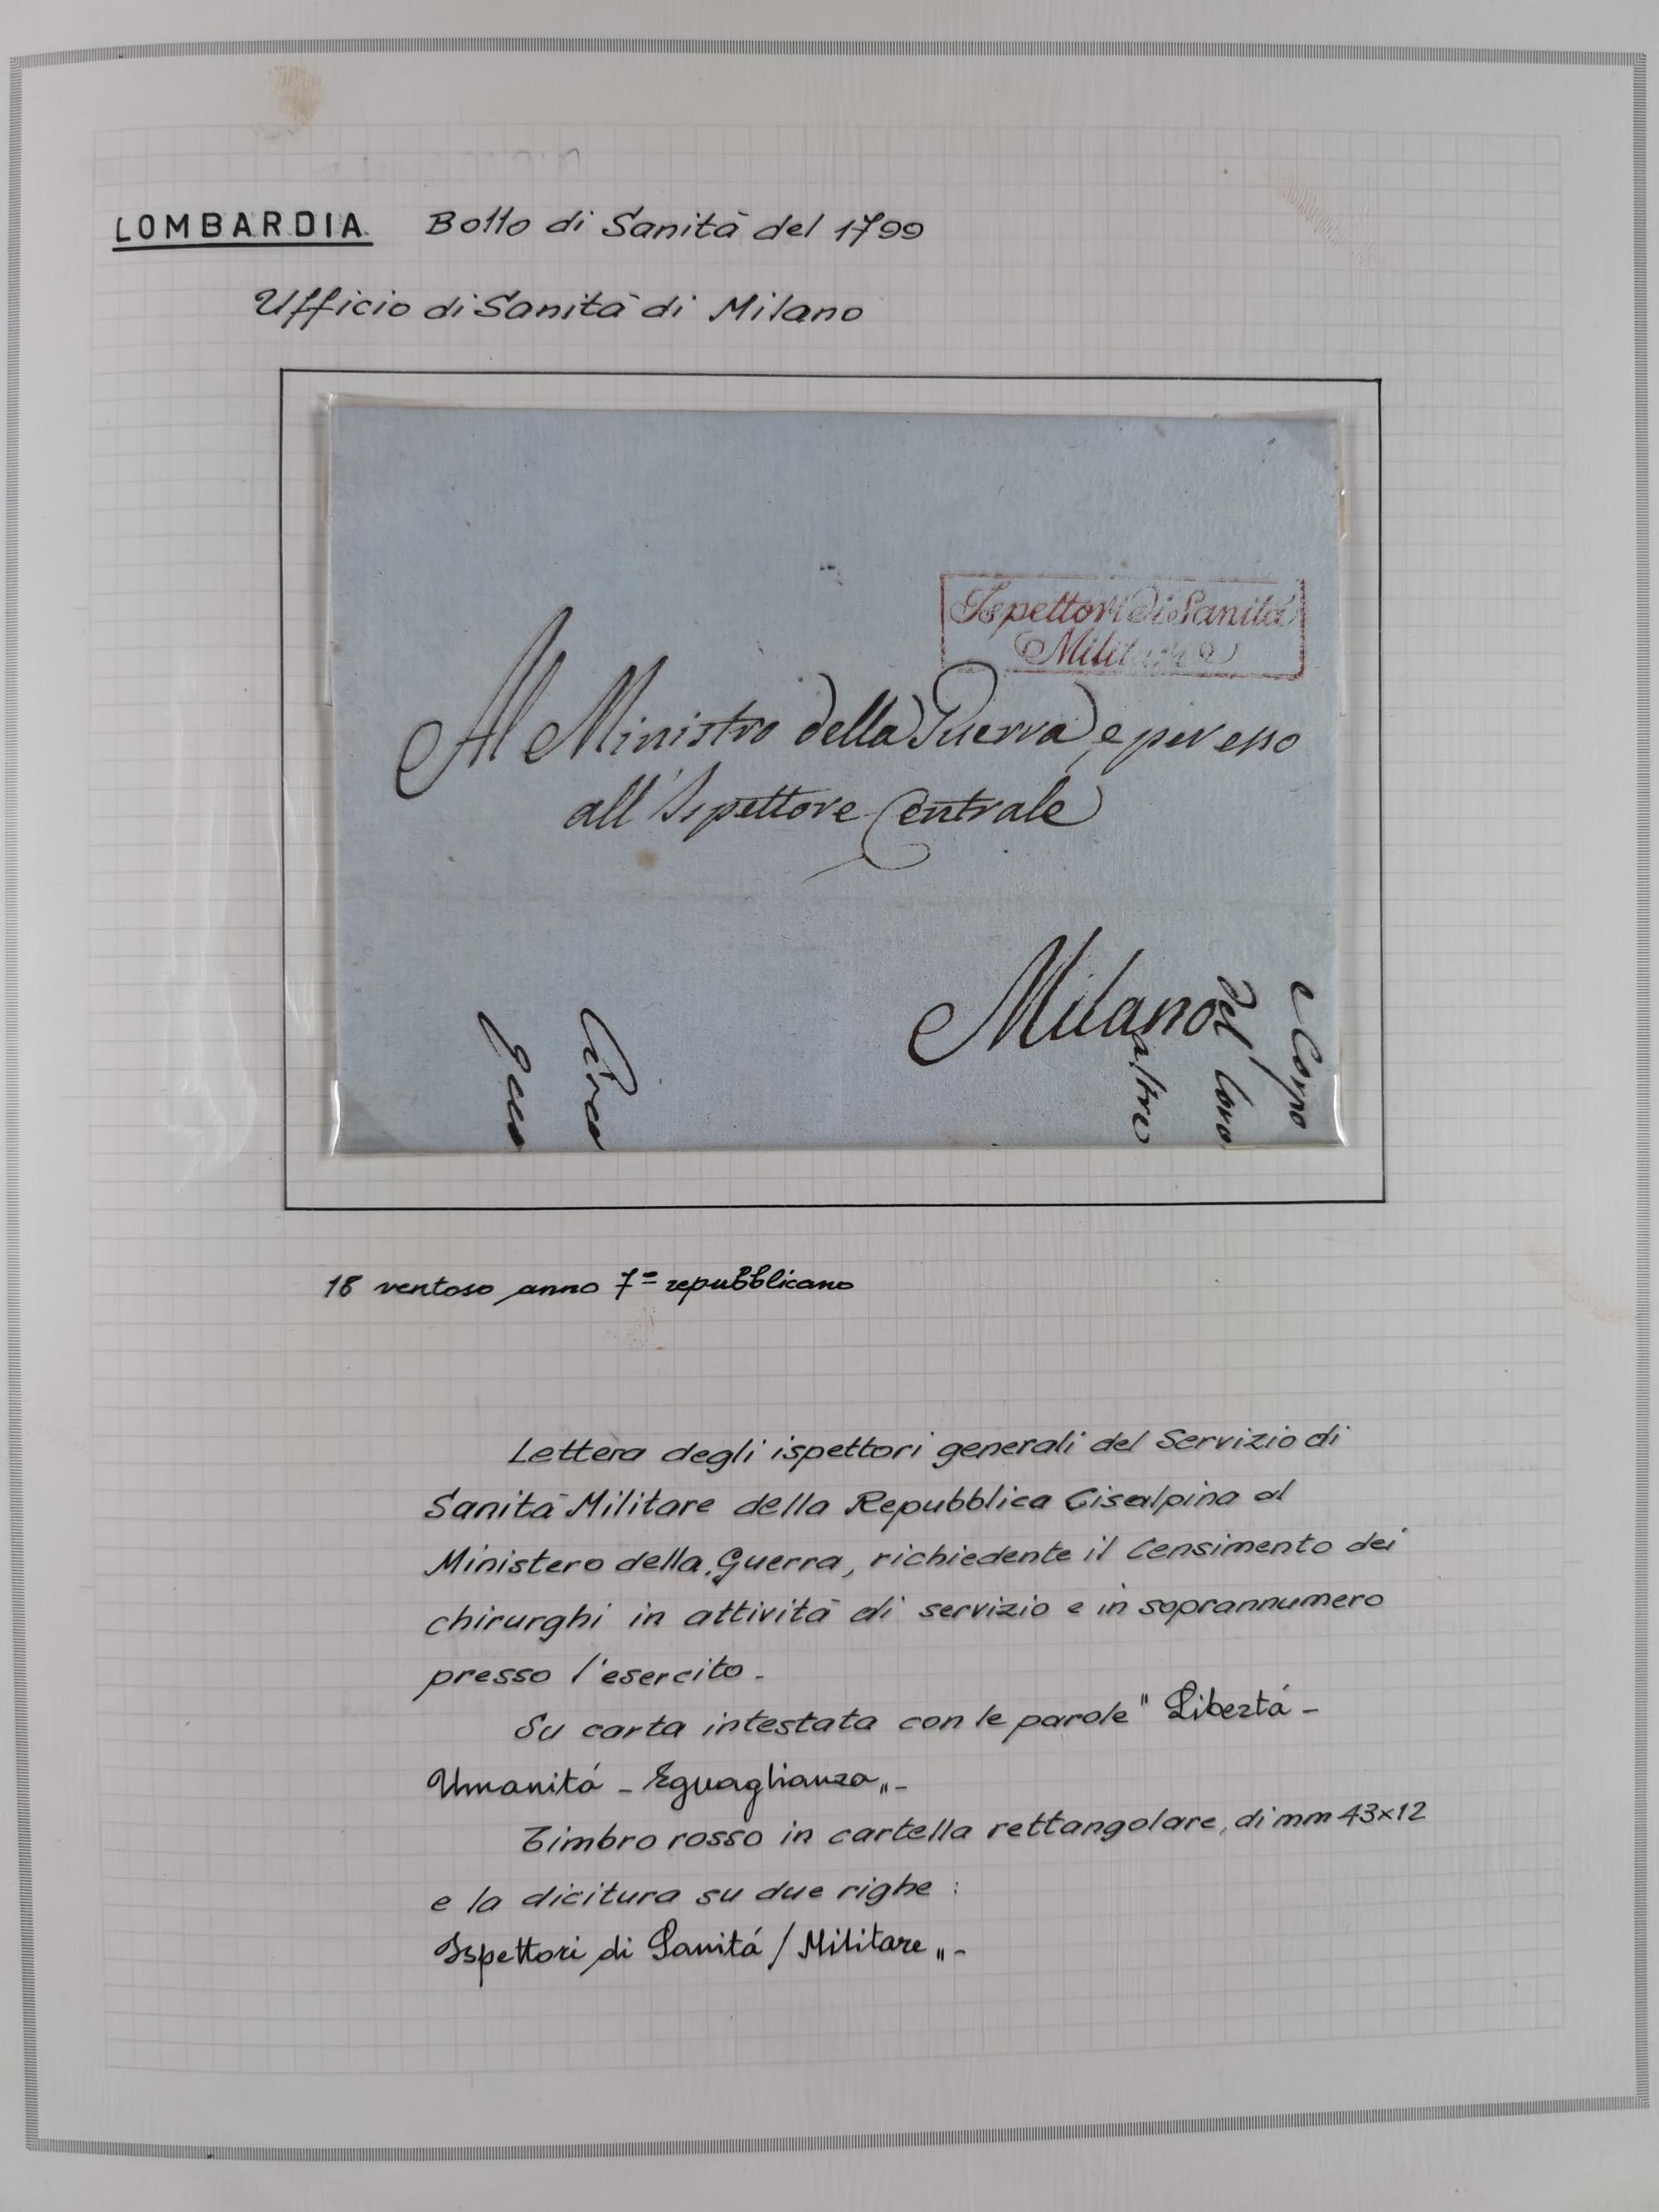 LOMBARDIA Bollo di Sanità del 1799
Ufficio di Sanità di Milano
Ispettori di Sanità
Militare
Al Ministro della Guerra e per esso
all'Ispettore Centrale
Milano
e Corpo
del loro
altre
Circa
18 ventoso anno 7º repubblicano
Lettera degli ispettori generali del Servizio di
Sanità Militare della Repubblica Cisalpina al
Ministero della Guerra, richiedente il Censimento dei
chirurghi in attività di servizio e in soprannumero
presso l'esercito.
Su carta intestata con le parole "Libertá -
Umanitá - Eguaglianza„-
Timbro rosso in cartella rettangolare, di mm 43x12
e la dicitura su due righe :
Ispettori di Sanitá / Militare„-